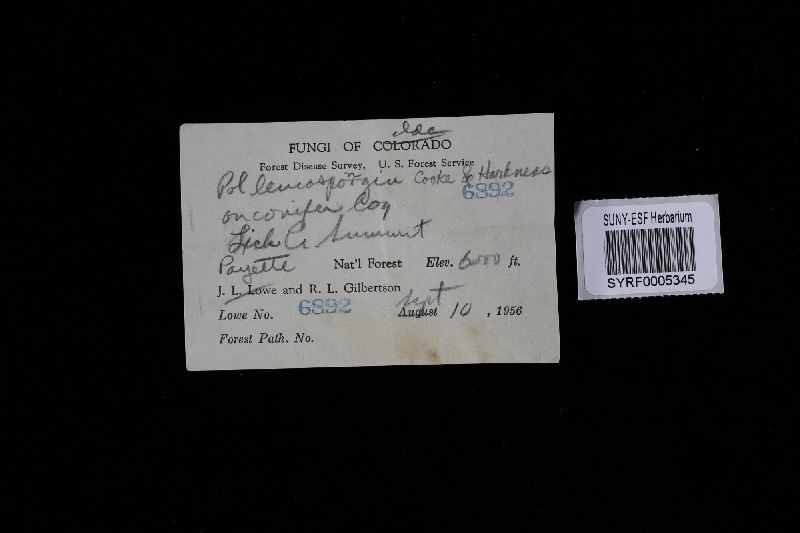 Ida
FUNGI OF COLORADO
Forest Disease Survey, U. S. Forest Service
Pol leucospongia Cooke & Harkness
6892
on conifer log
Fish Cr Summit
Payette Nat'l Forest Elev. 6000 ft.
J. L. Lowe and R. L. Gilbertson
Lowe No. 6892 Sept August 10 , 1956
Forest Path. No.
SUNY-ESF Herbarium
SYRF0005345